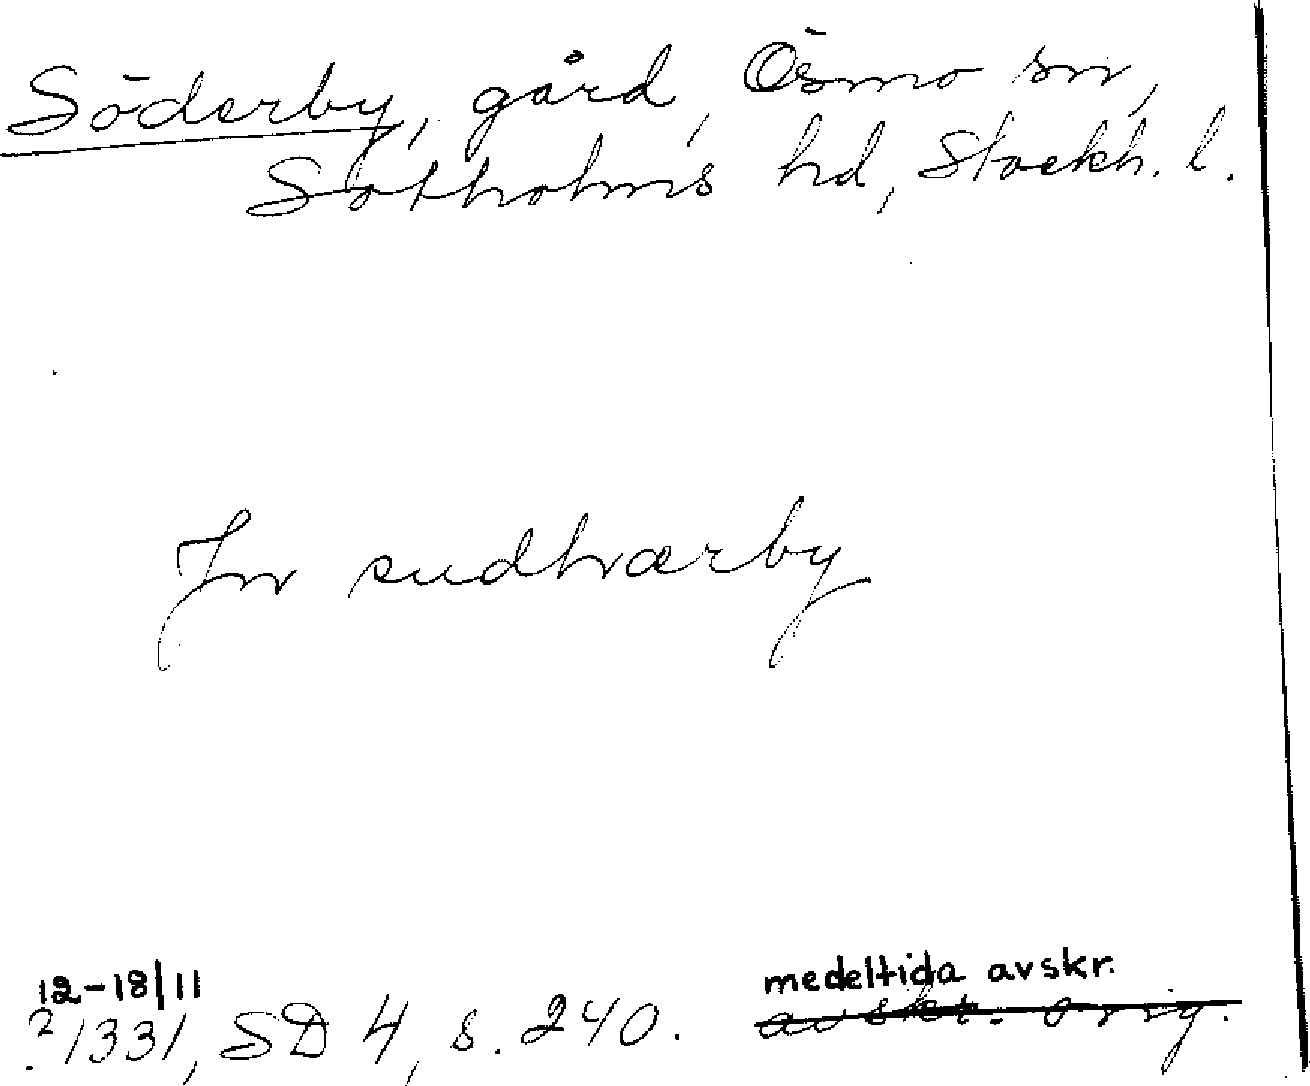 Söderby, gård, Ösmo sn,
Sotholms hd, Stockh. l.
Jn sudhærby
12-18/11
? 1331, SD 4, s. 240.
medeltida avskr.
avskr. orig.